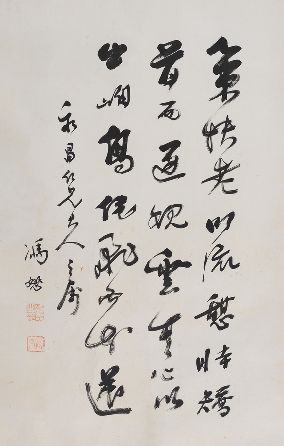 策扶老以流憩時矯
首而遐觀雲無心以
出岫鳥倦飛而知還
永昌仁兄大人之屬
馮恕